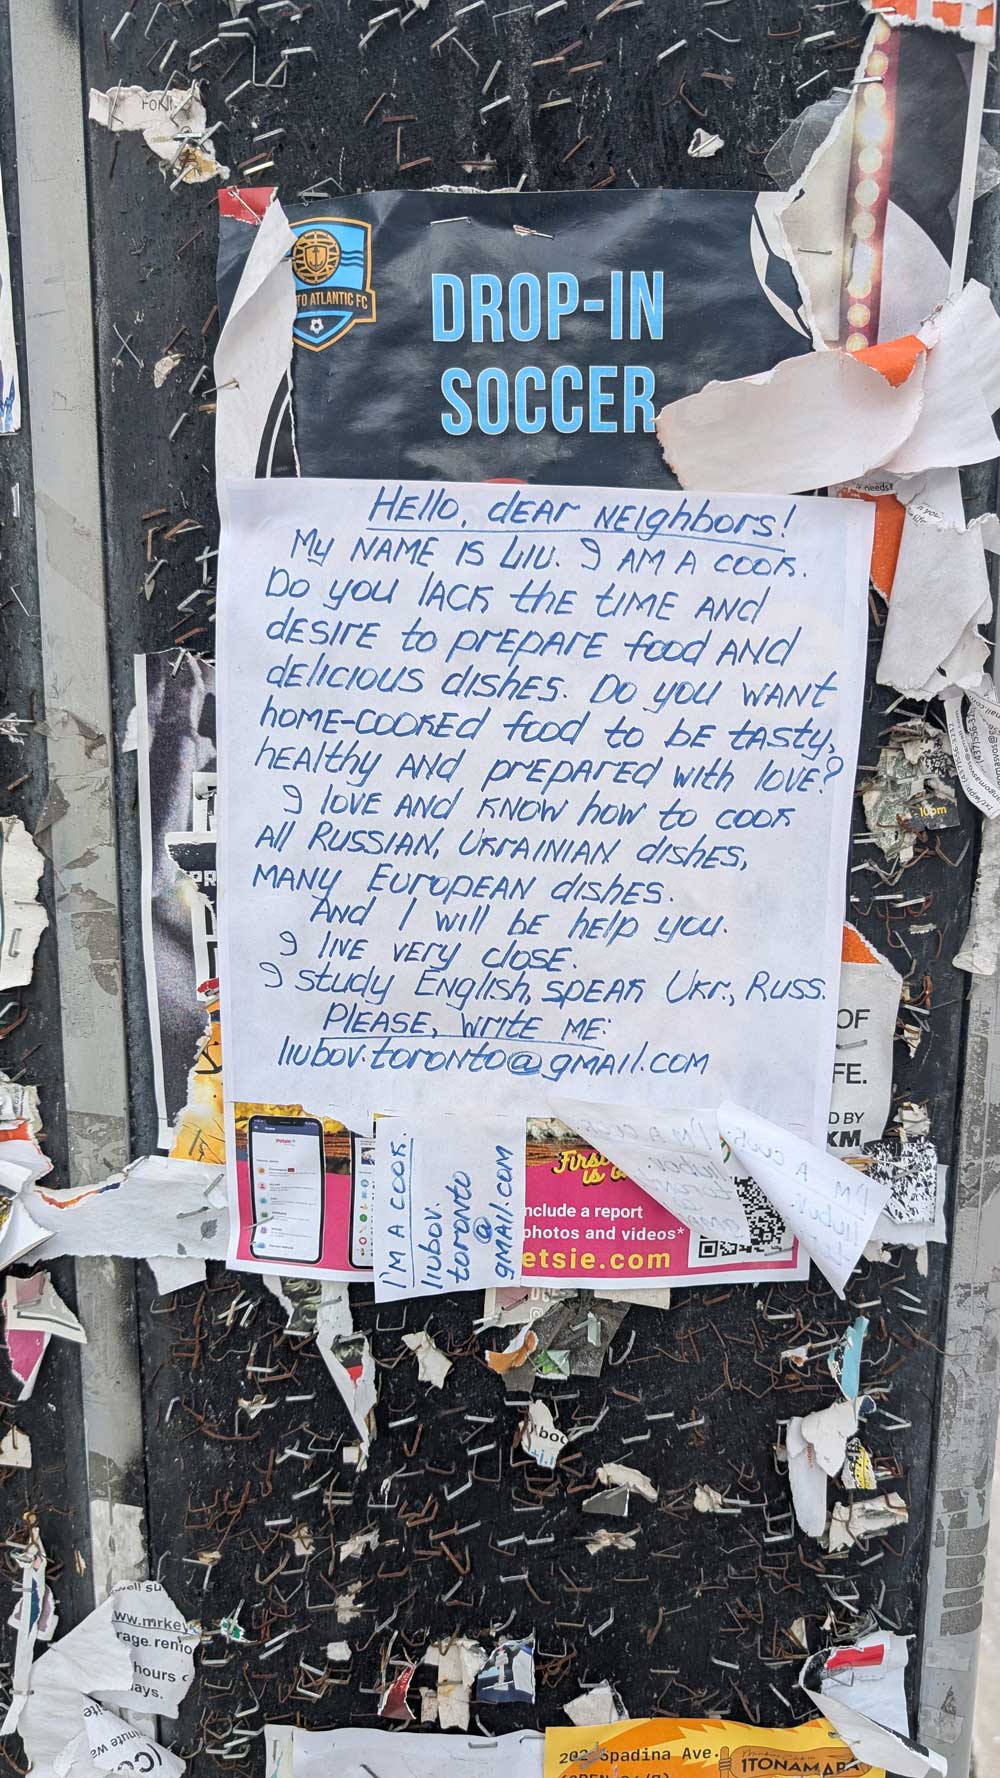 TO ATLANTIC FC
DROP-IN
SOCCER
Hello, dear Neighbors!
My NAME IS LIU. I AM A COOK.
Do you lACK the tIME AND
dESIrE to prEPArE food AND
dElICIOUS dIshES. Do you WANt
homE-COOKEd food to bE tAsty,
hEAlthy AND prEPArEd with lovE?
I lovE AND KNOW how to COOK
All RUSSIAN, UKrAINIAN dishES,
MANy EUropEAN dishES.
And I will bE hElp you.
I lIVE vEry closE.
I study ENglish, SPEAK Ukr., Russ.
PLEASE, WrItE ME:
liubov.toronto@gmail.com
I'M A COOK.
liubov.
toronto
@
gmail.com
OF
FE.
D BY
KM
- 10pm
nclude a report
photos and videos*
etsie.com
ww.mrkey
rage reno
hours
ays.
Spadina Ave.
ITONAMARA